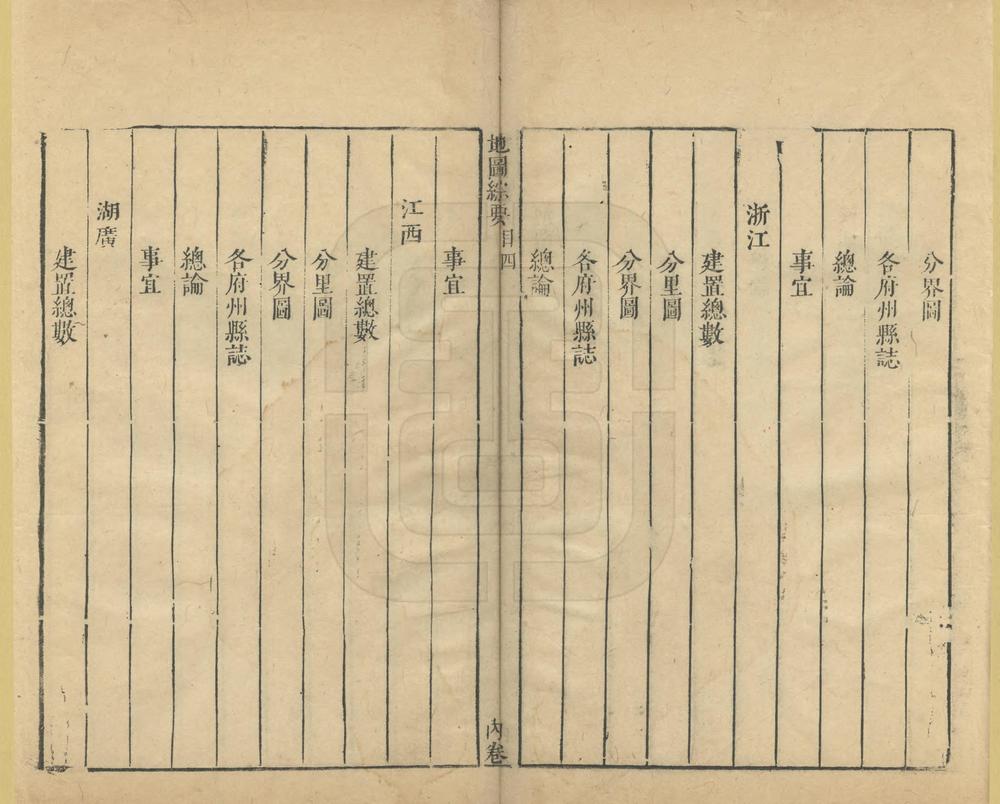 分界圖
各府州縣誌
總論
事宜
浙江
建置總數
分里圖
分界圖
各府州縣誌
總論
地圖綜要 目四 內卷
事宜
江西
建置總數
分里圖
分界圖
各府州縣誌
總論
事宜
湖廣
建置總數